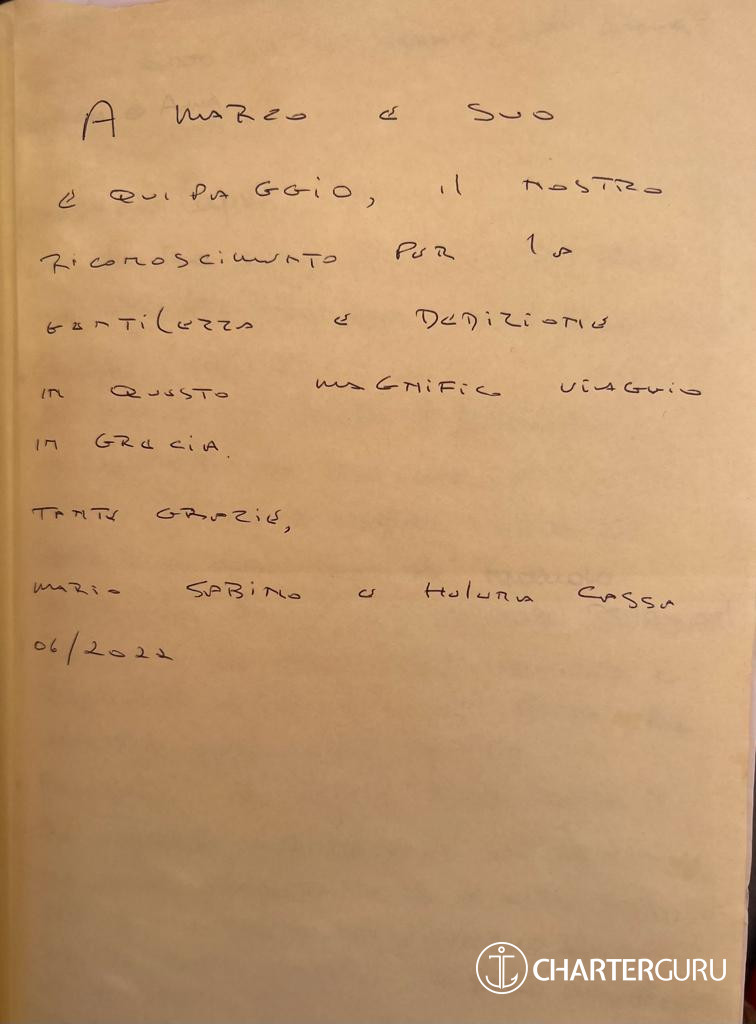 A MARCO E SUO
EQUIPAGGIO, il NOSTRO
RICONOSCIMENTO PER la
GENTILEZZA E DEDIZIONE
IN QUESTO MAGNIFICO VIAGGIO
IN GRECIA.
TANTE GRAZIE,
MARIO SABINO E HELENA CASSA
06/2022
CHARTERGURU